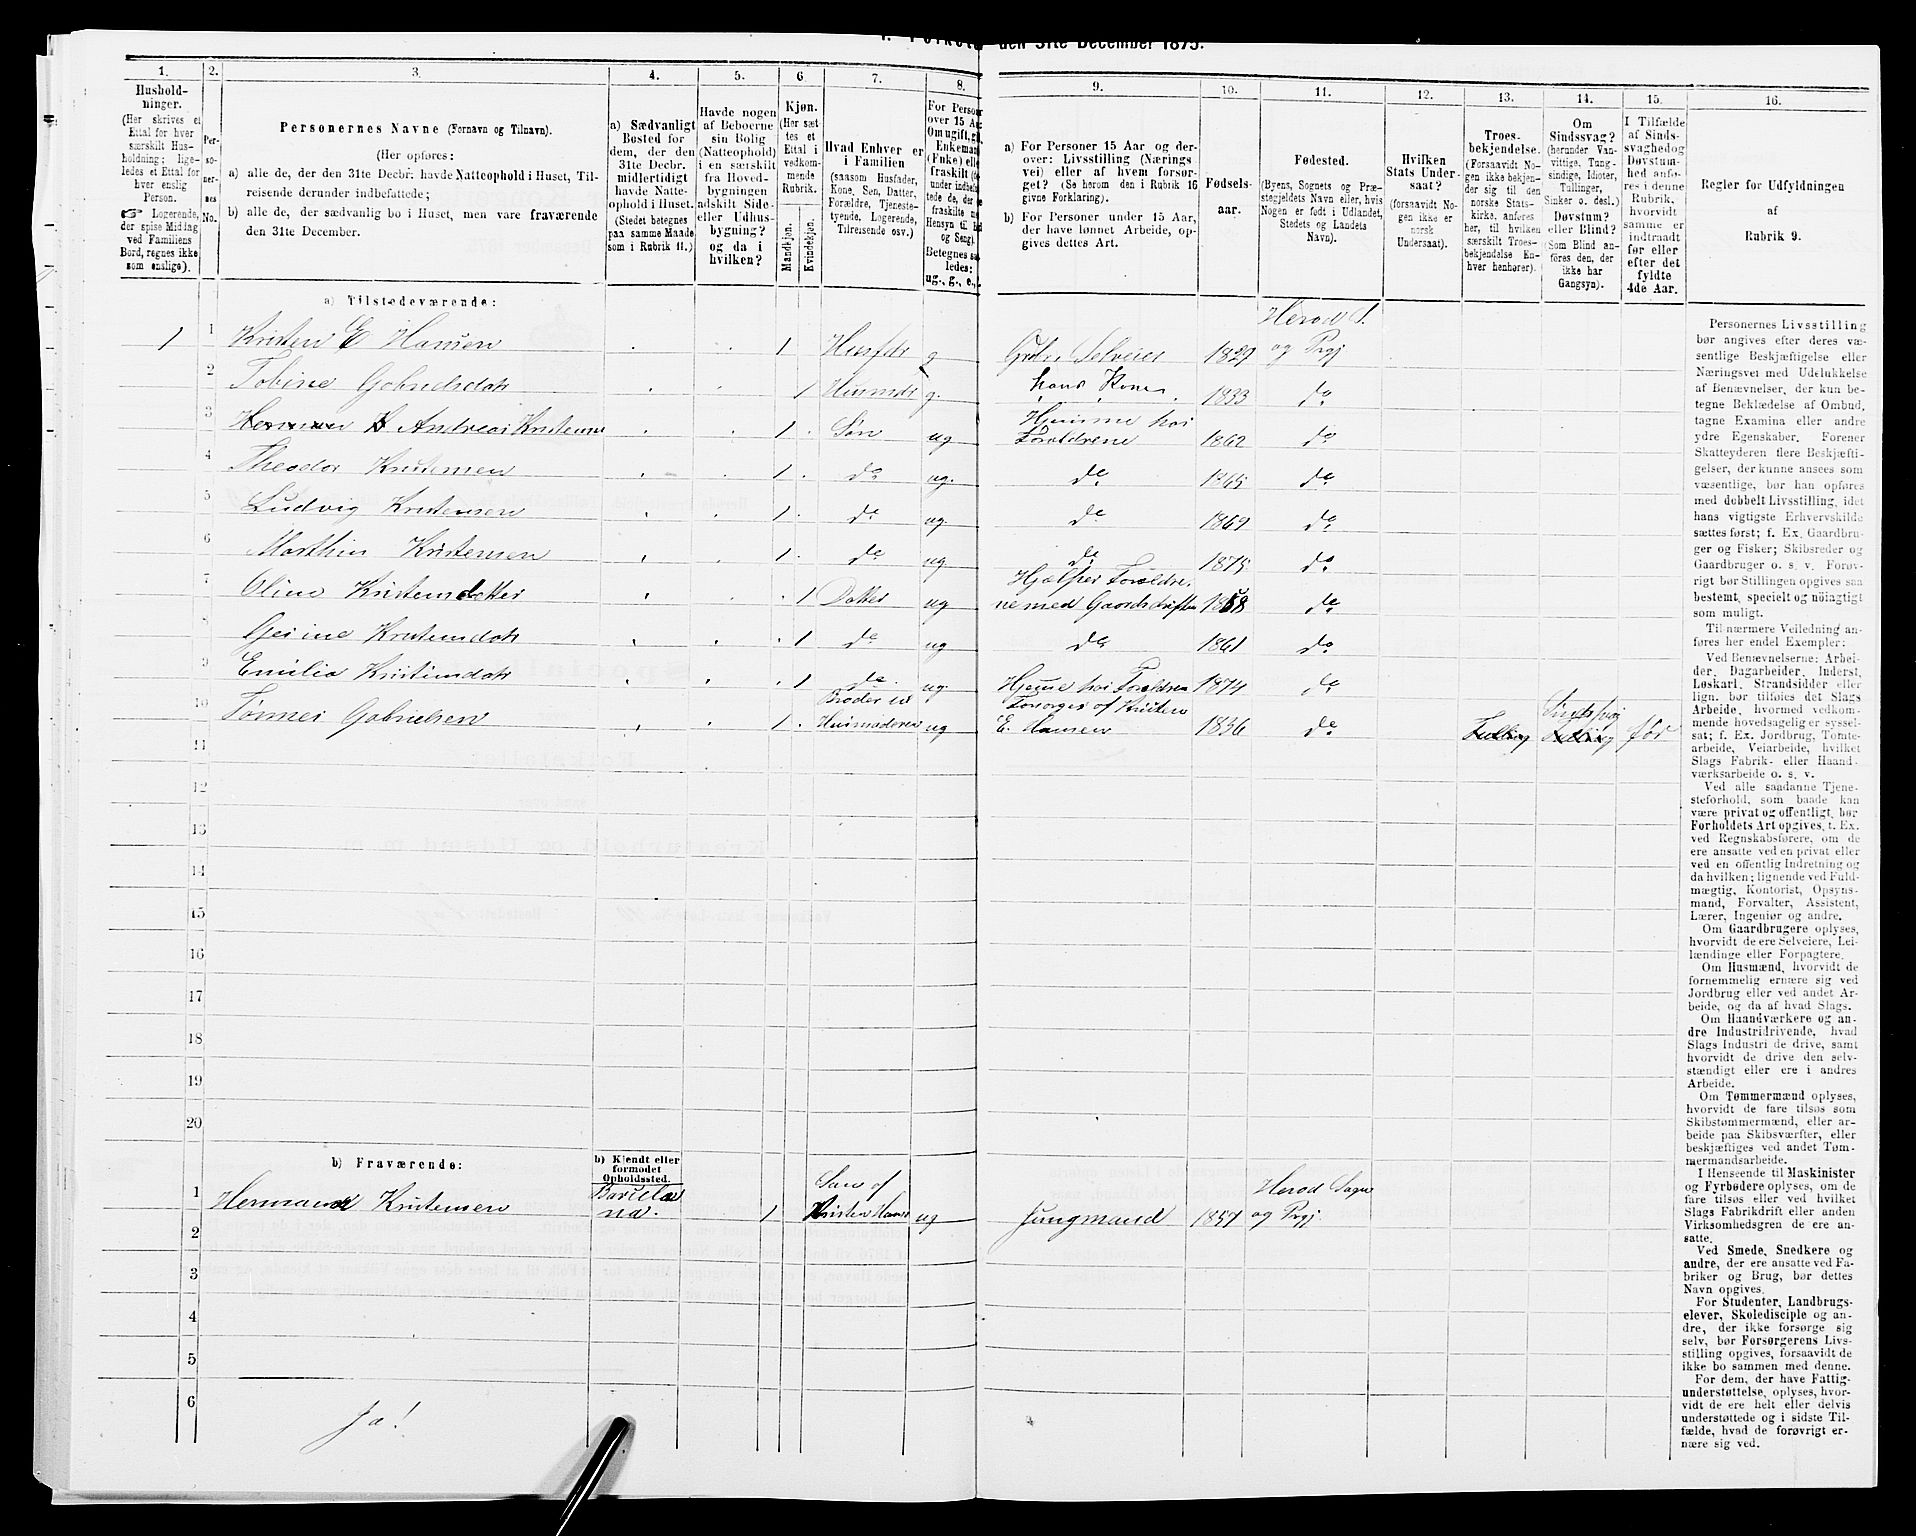 den 31te December 1875.
1.
Hushold-
ninger.
(Her skrives et
Ettal for hver
særskilt Hus-
holdning; lige-
ledes et Ettal for
hver enslig
Person.
☞ Logerende,
der spise Middag
ved Familiens
Bord, regnes ikke
som enslige).
2.
Per-
so-
ner-
nes
No.
3.
Personernes Navne (Fornavn og Tilnavn).
(Her opføres:
a) alle de, der den 31te Decbr. havde Natteophold i Huset, Til-
reisende derunder indbefattede;
b) alle de, der sædvanlig bo i Huset, men vare fraværende
den 31te December.
4.
a) Sædvanligt
Bosted for
dem, der den
31te Decbr.
midlertidigt
havde Natte-
ophold i Huset.
(Stedet betegnes
paa samme Maade
som i Rubrik 11.)
5.
Havde nogen
af Beboerne
sin Bolig
(Natteophold)
i en særskilt
fra Hoved-
bygningen
adskilt Side-
eller Udhus-
bygning?
og da i
hvilken?
6
Kjøn.
(Her sæt-
tes et
Ettal i
vedkom-
mende
Rubrik.
Mandkjøn.
Kvindekjøn.
7.
Hvad Enhver er
i Familien
(saasom Husfader,
Kone, Søn, Datter,
Forældre, Tjeneste-
tyende, Logerende,
Tilreisende osv.)
8.
For Person
over 15 Aar
Om ugift, g
Enkemand
(Enke) elle
fraskilt
Betegnes sa
ledes:
ug., g., e.,
9.
a) For Personer 15 Aar og der-
over: Livsstilling (Nærings-
vei) eller af hvem forsør-
get? (Se herom den i Rubrik 16
givne Forklaring).
b) For Personer under 15 Aar,
der have lønnet Arbeide, op-
gives dettes Art.
10.
Fødsels-
aar.
11.
Fødested.
(Byens, Sognets og Præ-
stegjeldets Navn eller, hvis
Nogen er født i Udlandet,
Stedets og Landets
Navn).
12.
Hvilken
Stats Under-
saat?
(forsaavidt No-
gen ikke er
norsk
Undersaat).
13.
Troes-
bekjendelse.
(Forsaavidt No-
gen ikke bekjen-
der sig til den
norske Stats-
kirke, anføres
her, til hvilken
særskilt Troes-
bekjendelse En-
hver henhører).
14.
Om
Sindssvag?
(herunder Van-
vittige, Tung-
sindige, Idioter,
Tullinger,
Sinker o. desl.)
Døvstum?
eller Blind?
(Som Blind an-
føres den, der
ikke har
Gangsyn).
15.
I Tilfælde
af Sinds-
svaghed og
Døvstum-
hed anfø-
res i denne
Rubrik,
hvorvidt
samme er
indtraadt
før eller
efter det
fyldte
4de Aar.
16.
Regler for Udfyldningen
af
Rubrik 9.
a) Tilstedeværende:
1 1 Kristen E Hansen 1 Husfdr g Grdr. Selveier 1829 Herod S. og Prgj
2 Tobine Gabrielsdatr 1 Husmdr g. hans Kone 1833 do
3 Herman K Andreas Kristensen 1 Søn ug Hjemme hos Forældrene 1862 do
4 Theodor Kristensen 1 do ug. do 1865 do
5 Ludvig Kristensen 1 do ug. do 1869 do
6 Marthin Kristensen 1 do ug do 1875 do
7 Oline Kristensdatter 1 Datter ug Hjælper Forældrene med Gaardsdriften 1858 do
Gesine Kristensdatr 1 do ug do 1861 do
9 Emilie Kristensdatr 1 do. ug. Hjeme hos Forældren 1874 do
10 Tønnes Gabrielsen 1 Broder til Husmoderen ug Forsørges af Kristen E. Hansen 1836 do Tulling Sindssvag Tulling før
11
12
13
14
15
16
17
18
19
20
b) Fraværende:
b) Kjendt eller
formodet
Opholdssted.
1 Hermand Kristensen 1 Søn af Kristen Hans ug Jungmand 1857 Herod Sogn og Prgj.
2
3
4
5
6
Ja!
Personernes Livsstilling
bør angives efter deres væ-
sentlige Beskjæftigelse eller
Næringsvei med Udelukkelse
af Benævnelser, der kun be-
tegne Beklædelse af Ombud,
tagne Examina eller andre
ydre Egenskaber. Forener
Skatteyderen flere Beskjæfti-
gelser, der kunne ansees som
væsentlige, bør han opføres
med dobbelt Livsstilling, idet
hans vigtigste Erhvervskilde
sættes først; f. Ex. Gaardbru-
ger og Fisker; Skibsreder og
Gaardbruger o. s. v. Forøv-
rigt bør Stillingen opgives saa
bestemt, specielt og nöiagtigt
som muligt.
Til nærmere Veiledning an-
føres her endel Exempler:
Ved Benævnelserne: Arbei-
der, Dagarbeider, Inderst,
Løskarl, Strandsidder eller
lign. bør tilføies det Slags
Arbeide, hvormed vedkom-
mende hovedsagelig er syssel-
sat; f. Ex. Jordbrug, Tomte-
arbeide, Veiarbeide, hvilket
Slags Fabrik- eller Haand-
værksarbeide o. s. v.
Ved alle saadanne Tjene-
steforhold, som baade kan
være privat og offentligt, bør
Forholdets Art opgives, f. Ex.
ved Regnskabsførere, om de
ere ansatte ved en privat eller
ved en offentlig Indretning og
da hvilken; lignende ved Fuld-
mægtig, Kontorist, Opsyns-
mand, Forvalter, Assistent,
Lærer, Ingeniør og andre.
Om Gaardbrugere oplyses,
hvorvidt de ere Selveiere, Lei-
lændinge eller Forpagtere.
Om Husmænd, hvorvidt de
fornemmelig ernære sig ved
Jordbrug eller ved andet Ar-
beide, og da af hvad Slags.
Om Haandværkere og an-
dre Industridrivende, hvad
Slags Industri de drive, samt
hvorvidt de drive den selv-
stændigt eller ere i andres
Arbeide.
Om Tømmermænd oplyses,
hvorvidt de fare tilsøs som
Skibstømmermænd, eller ar-
beide paa Skibsværfter, eller
beskjæftiges ved andet Tøm-
mermandsarbeide.
I Henseende til Maskinister
og Fyrbødere oplyses, om de
fare tilsøs eller ved hvilket
Slags Fabrikdrift eller anden
Virksomhedsgren de ere an-
satte.
Ved Smede, Snedkere og
andre, der ere ansatte ved Fa-
briker og Brug, bør dettes
Navn opgives.
For Studenter, Landbrugs-
elever, Skoledisciple og an-
dre, der ikke forsørge sig
selv, bør Forsørgerens Livs-
stilling opgives, forsaavidt de
ikke bo sammen med denne.
For dem, der have Fattig-
understøttelse, oplyses, hvor-
vidt de ere helt eller delvis
understøttede og i sidste Til-
fælde, hvad de forøvrigt er-
nære sig ved.